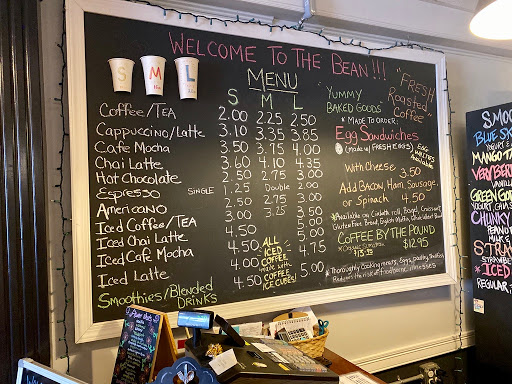 WELCOME TO THE BEAN!!!
MENU
S M L
S M L
Coffee/TEA 2.00 2.25 2.50
Cappuccino/Latte 3.10 3.35 3.85
Cafe Mocha 3.50 3.75 4.00
Chai Latte 3.60 4.10 4.35
Hot Chocolate 2.50 2.75 3.00
Espresso SINGLE 1.25 Double 2.00
Americano 2.50 2.75 3.00
Iced Coffee/TEA 3.00
Iced Chai Latte 4.50
Iced Cafe Mocha 4.50
Iced Latte 4.00
Smoothies/Blended DRINKS 4.50
ALL
ICED
COFFEE
made with
COFFEE
ICE CUBES!
4.75
5.00
"YUMMY
BAKED GOODS"
"FRESH
Roasted
Coffee"
* MADE TO ORDER:
Egg Sandwiches
(made w/ FRESH EGGS)
EGG
WHITES
AVAILABLE
With Cheese 3.50
Add Bacon, Ham, Sausage,
or Spinach 4.50
COFFEE BY THE POUND
$12.95
*Thoroughly Cooking meats, Eggs, poultry, Shellfish
Reduces the risk of foodborne illnesses
SMOO
BLUE SK
MANGO TA
VERY BERR
VANILLA
GREEN GO
CHUNKY
PEANUT
MILK
STRA
STRAWBE
*ICED
REGULAR